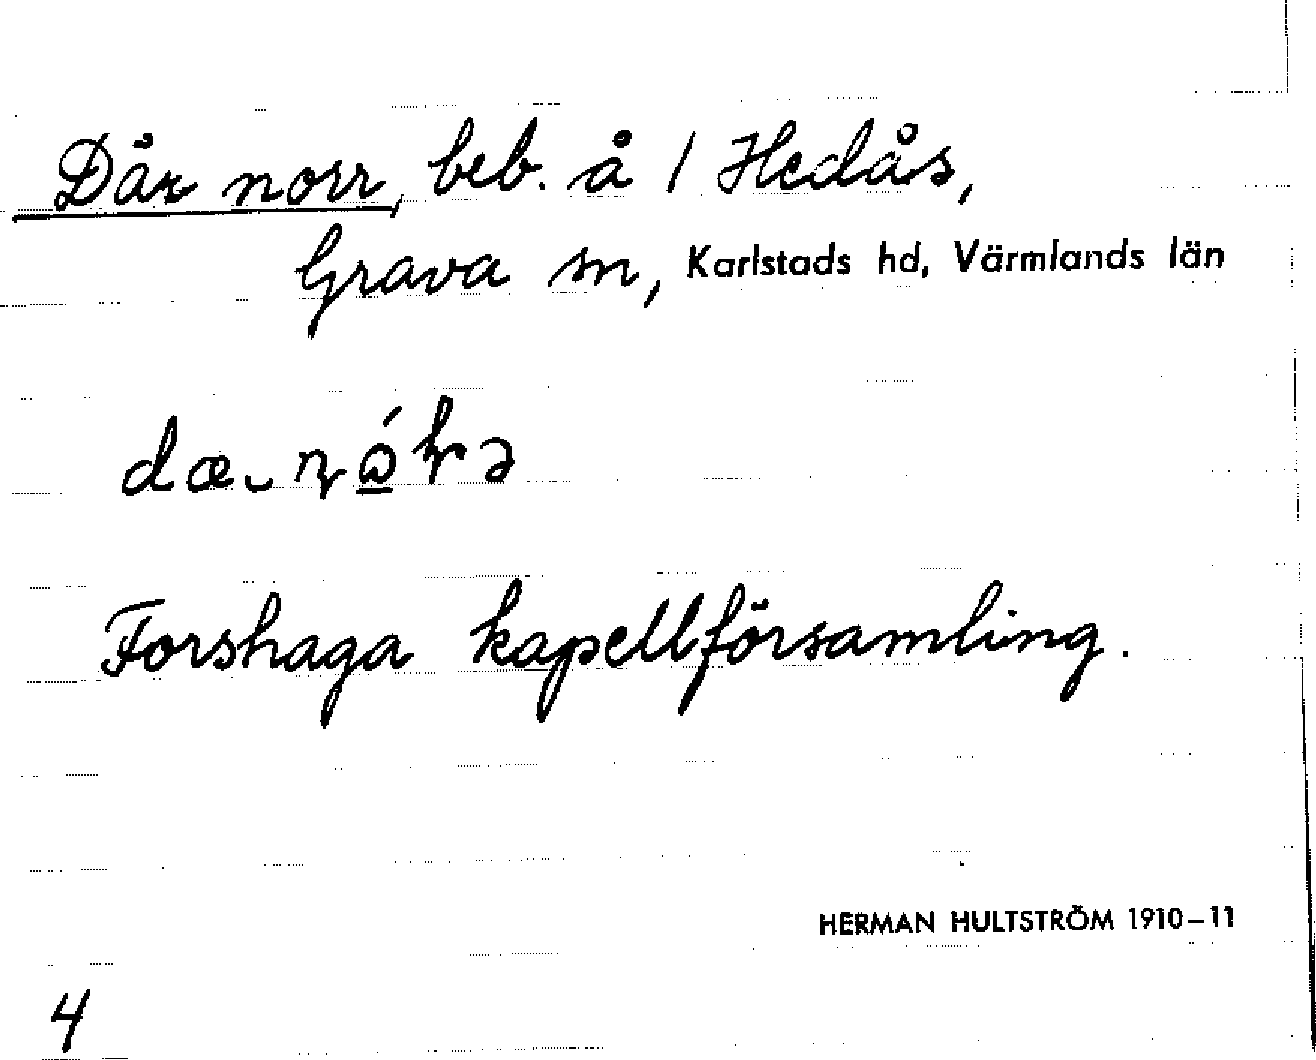 Där norr, beb. å / Hedås,
Grava sn, Karlstads hd, Värmlands län
Forshaga kapellförsamling.
HERMAN HULTSTRÖM 1910–11
4